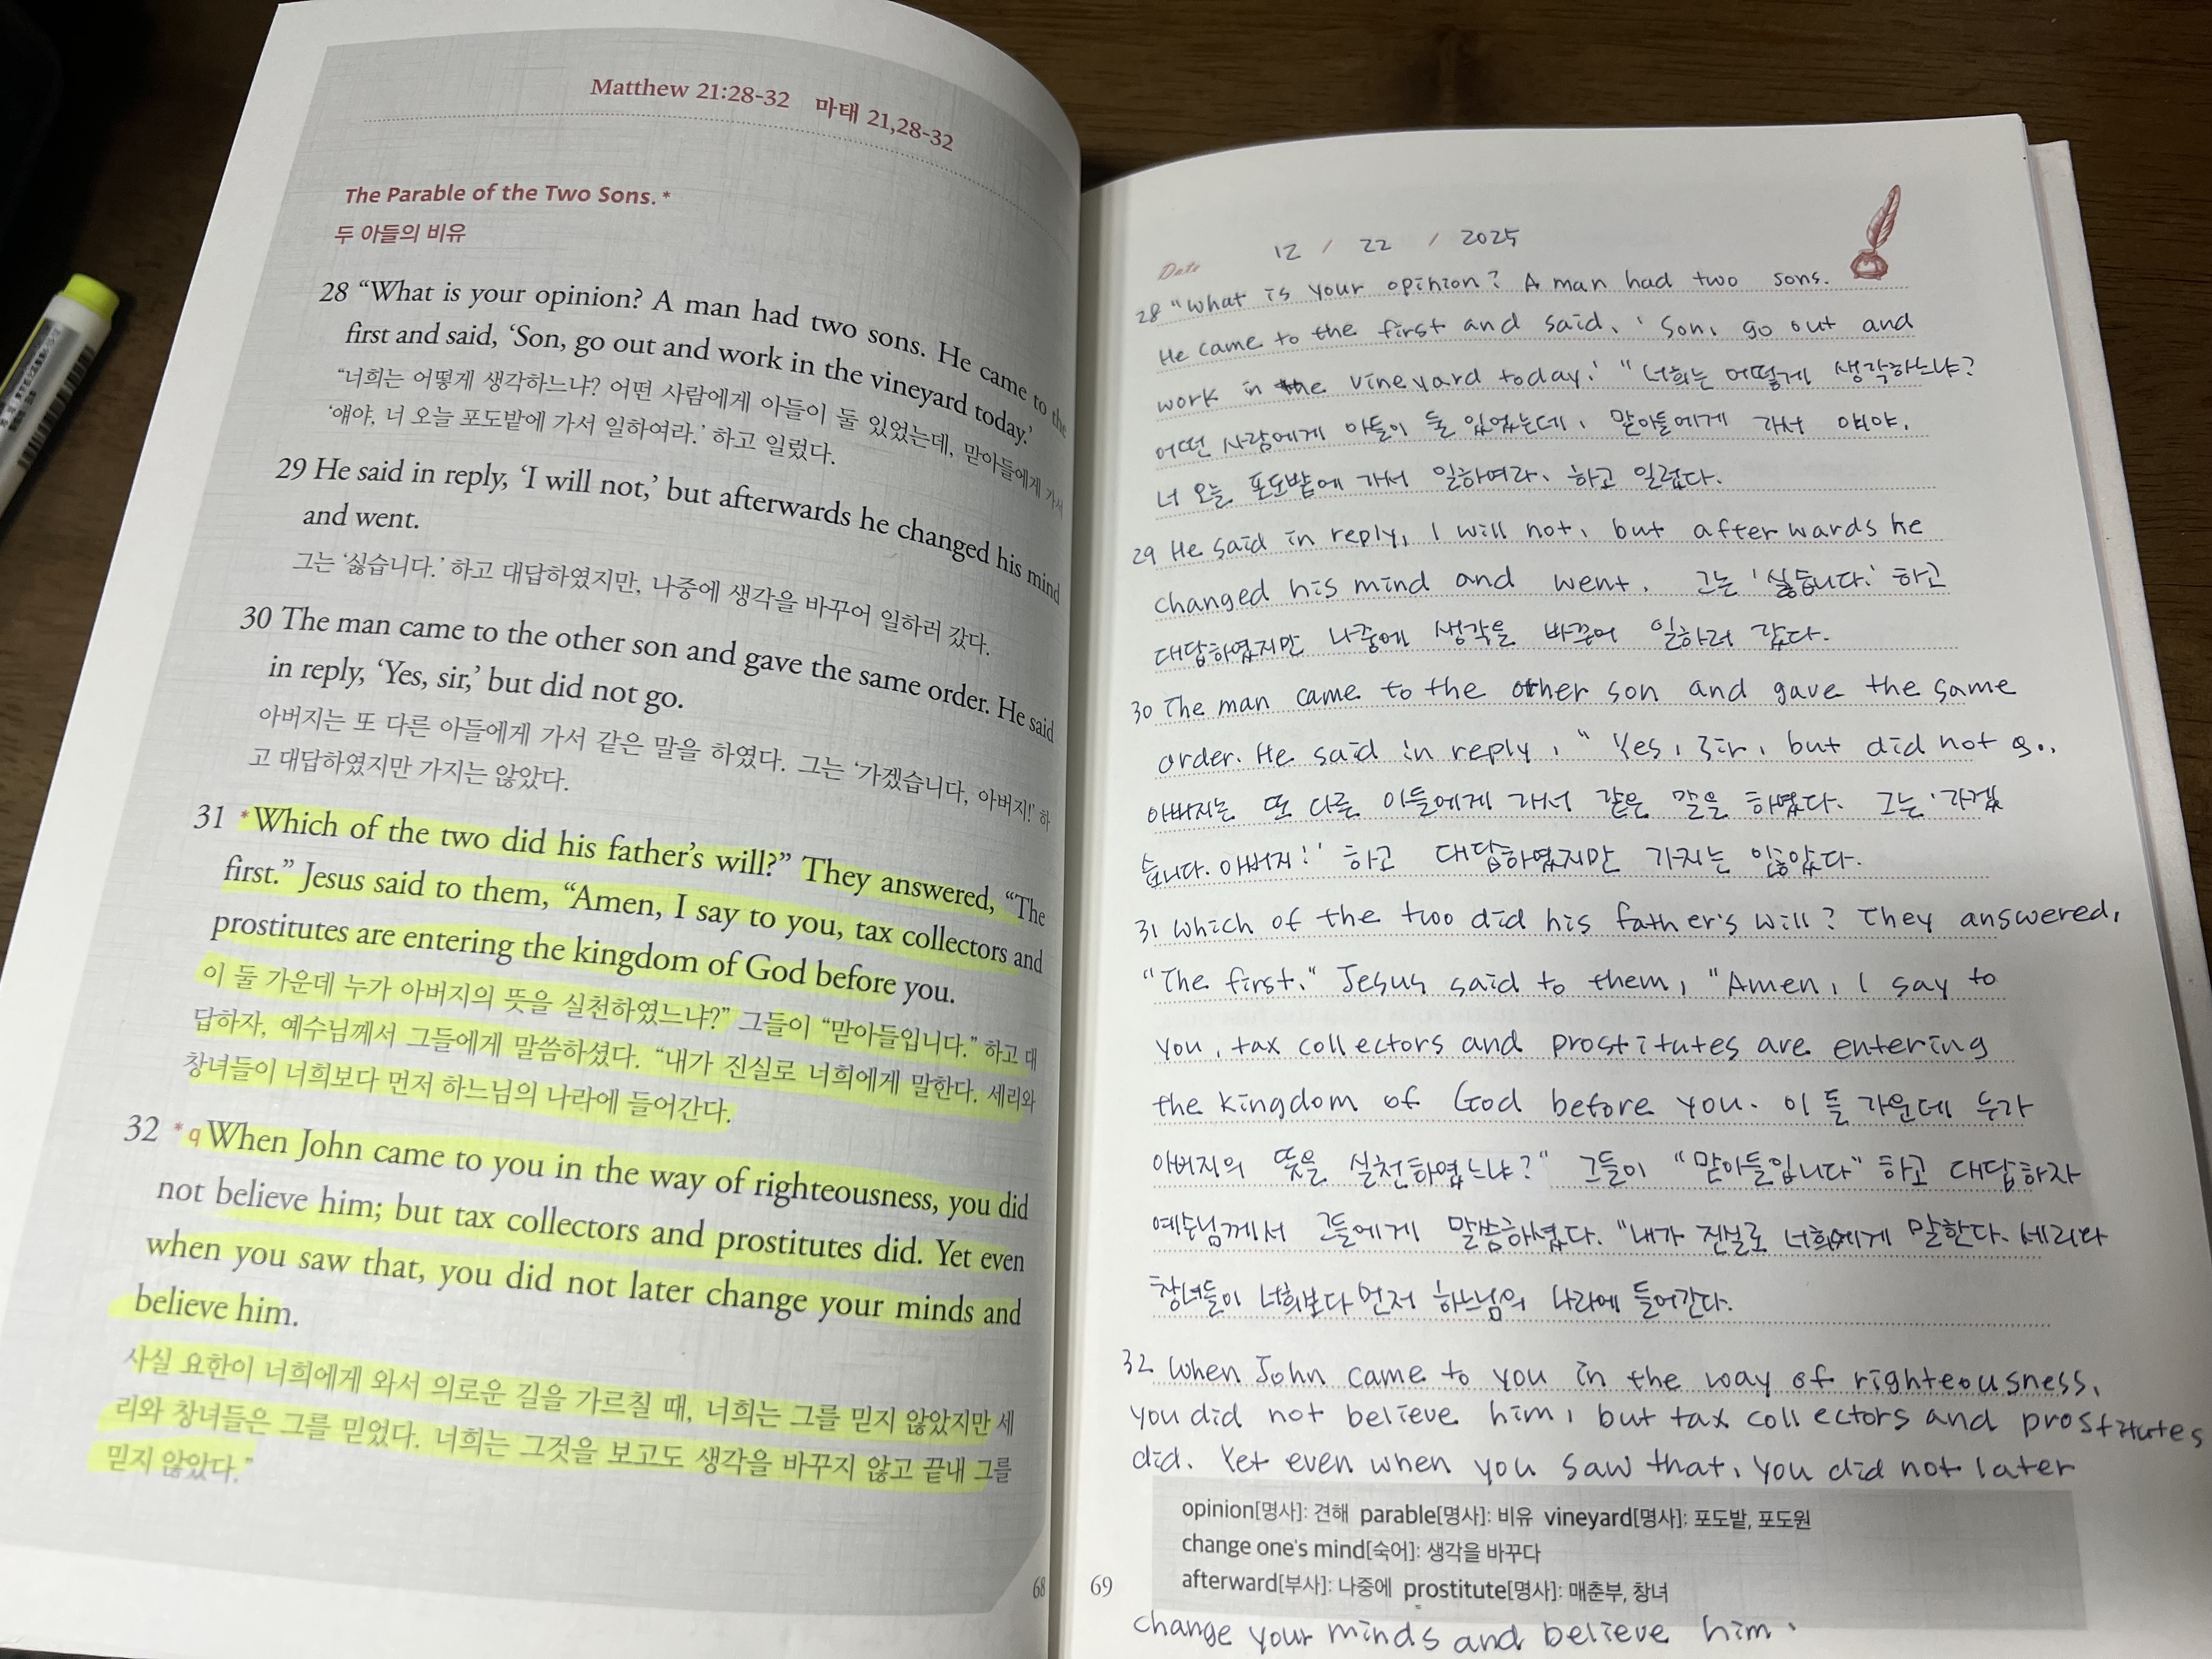 Matthew 21:28-32 마태 21,28-32
The Parable of the Two Sons.*
두 아들의 비유
28 “What is your opinion? A man had two sons. He came to the
first and said, ‘Son, go out and work in the vineyard today.’
“너희는 어떻게 생각하느냐? 어떤 사람에게 아들이 둘 있었는데, 맏아들에게 가서
‘얘야, 너 오늘 포도밭에 가서 일하여라.’ 하고 일렀다.
29 He said in reply, ‘I will not,’ but afterwards he changed his mind
and went.
그는 ‘싫습니다.’ 하고 대답하였지만, 나중에 생각을 바꾸어 일하러 갔다.
30 The man came to the other son and gave the same order. He said
in reply, ‘Yes, sir,’ but did not go.
아버지는 또 다른 아들에게 가서 같은 말을 하였다. 그는 ‘가겠습니다, 아버지!’ 하
고 대답하였지만 가지는 않았다.
31 *Which of the two did his father’s will?” They answered, “The
first.” Jesus said to them, “Amen, I say to you, tax collectors and
prostitutes are entering the kingdom of God before you.
이 둘 가운데 누가 아버지의 뜻을 실천하였느냐?” 그들이 “맏아들입니다.” 하고 대
답하자, 예수님께서 그들에게 말씀하셨다. “내가 진실로 너희에게 말한다. 세리와
창녀들이 너희보다 먼저 하느님의 나라에 들어간다.
32 *q When John came to you in the way of righteousness, you did
not believe him; but tax collectors and prostitutes did. Yet even
when you saw that, you did not later change your minds and
believe him.
사실 요한이 너희에게 와서 의로운 길을 가르칠 때, 너희는 그를 믿지 않았지만 세
리와 창녀들은 그를 믿었다. 너희는 그것을 보고도 생각을 바꾸지 않고 끝내 그를
믿지 않았다.”
68
Date 12 / 22 / 2025
28 "What is your opinion? A man had two sons.
He came to the first and said, 'Son, go out and
work in the vineyard today.' "너희는 어떻게 생각하느냐?
어떤 사람에게 아들이 둘 있었는데, 맏아들에게 가서 얘야,
너 오늘 포도밭에 가서 일하여라, 하고 일렀다.
29 He said in reply, I will not, but afterwards he
changed his mind and went. 그는 '싫습니다.' 하고
대답하였지만 나중에 생각을 바꾸어 일하러 갔다.
30 The man came to the other son and gave the same
order. He said in reply, " Yes, sir, but did not go.
아버지는 또 다른 아들에게 가서 같은 말을 하였다. 그는 '가겠
습니다. 아버지!' 하고 대답하였지만 가지는 않았다.
31 Which of the two did his father's will? They answered,
"The first." Jesus said to them, "Amen, I say to
you, tax collectors and prostitutes are entering
the kingdom of God before you. 이 둘 가운데 누가
아버지의 뜻을 실천하였느냐?" 그들이 "맏아들입니다" 하고 대답하자
예수님께서 그들에게 말씀하셨다. "내가 진실로 너희에게 말한다. 세리와
창녀들이 너희보다 먼저 하느님의 나라에 들어간다.
32 When John came to you in the way of righteousness,
you did not believe him, but tax collectors and prostitutes
did. Yet even when you saw that, you did not later
opinion[명사]: 견해 parable[명사]: 비유 vineyard[명사]: 포도밭, 포도원
change one's mind[숙어]: 생각을 바꾸다
afterward[부사]: 나중에 prostitute[명사]: 매춘부, 창녀
69
change your minds and believe him.